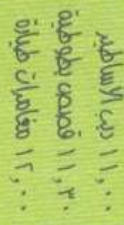 ١١,٠٠ درب الاساطير
١١,٣٠ قصص بطوطية
١٢,٠٠ مغامرات طيارة